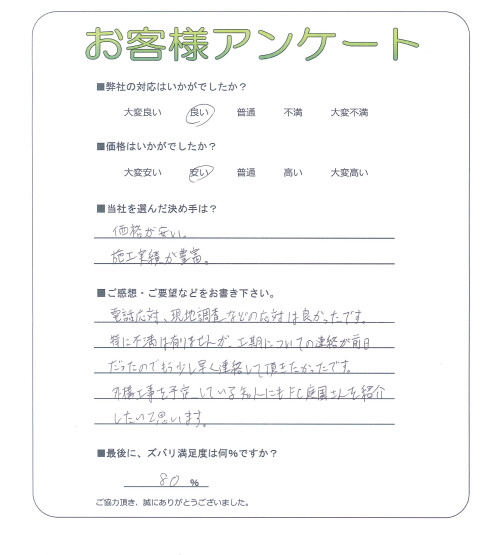 お客様アンケート
■弊社の対応はいかがでしたか？
大変良い 良い 普通 不満 大変不満
■価格はいかがでしたか？
大変安い 安い 普通 高い 大変高い
■当社を選んだ決め手は？
価格が安い。
施工実績が豊富。
■ご感想・ご要望などをお書き下さい。
電話応対、現地調査などの応対は良かったです。
特に不満は有りませんが、工期についての連絡が前日
だったのでもう少し早く連絡して頂きたかったです。
外構工事を予定している知人にもFC庭園さんを紹介
したいと思います。
■最後に、ズバリ満足度は何％ですか？
80 ％
ご協力頂き、誠にありがとうございました。